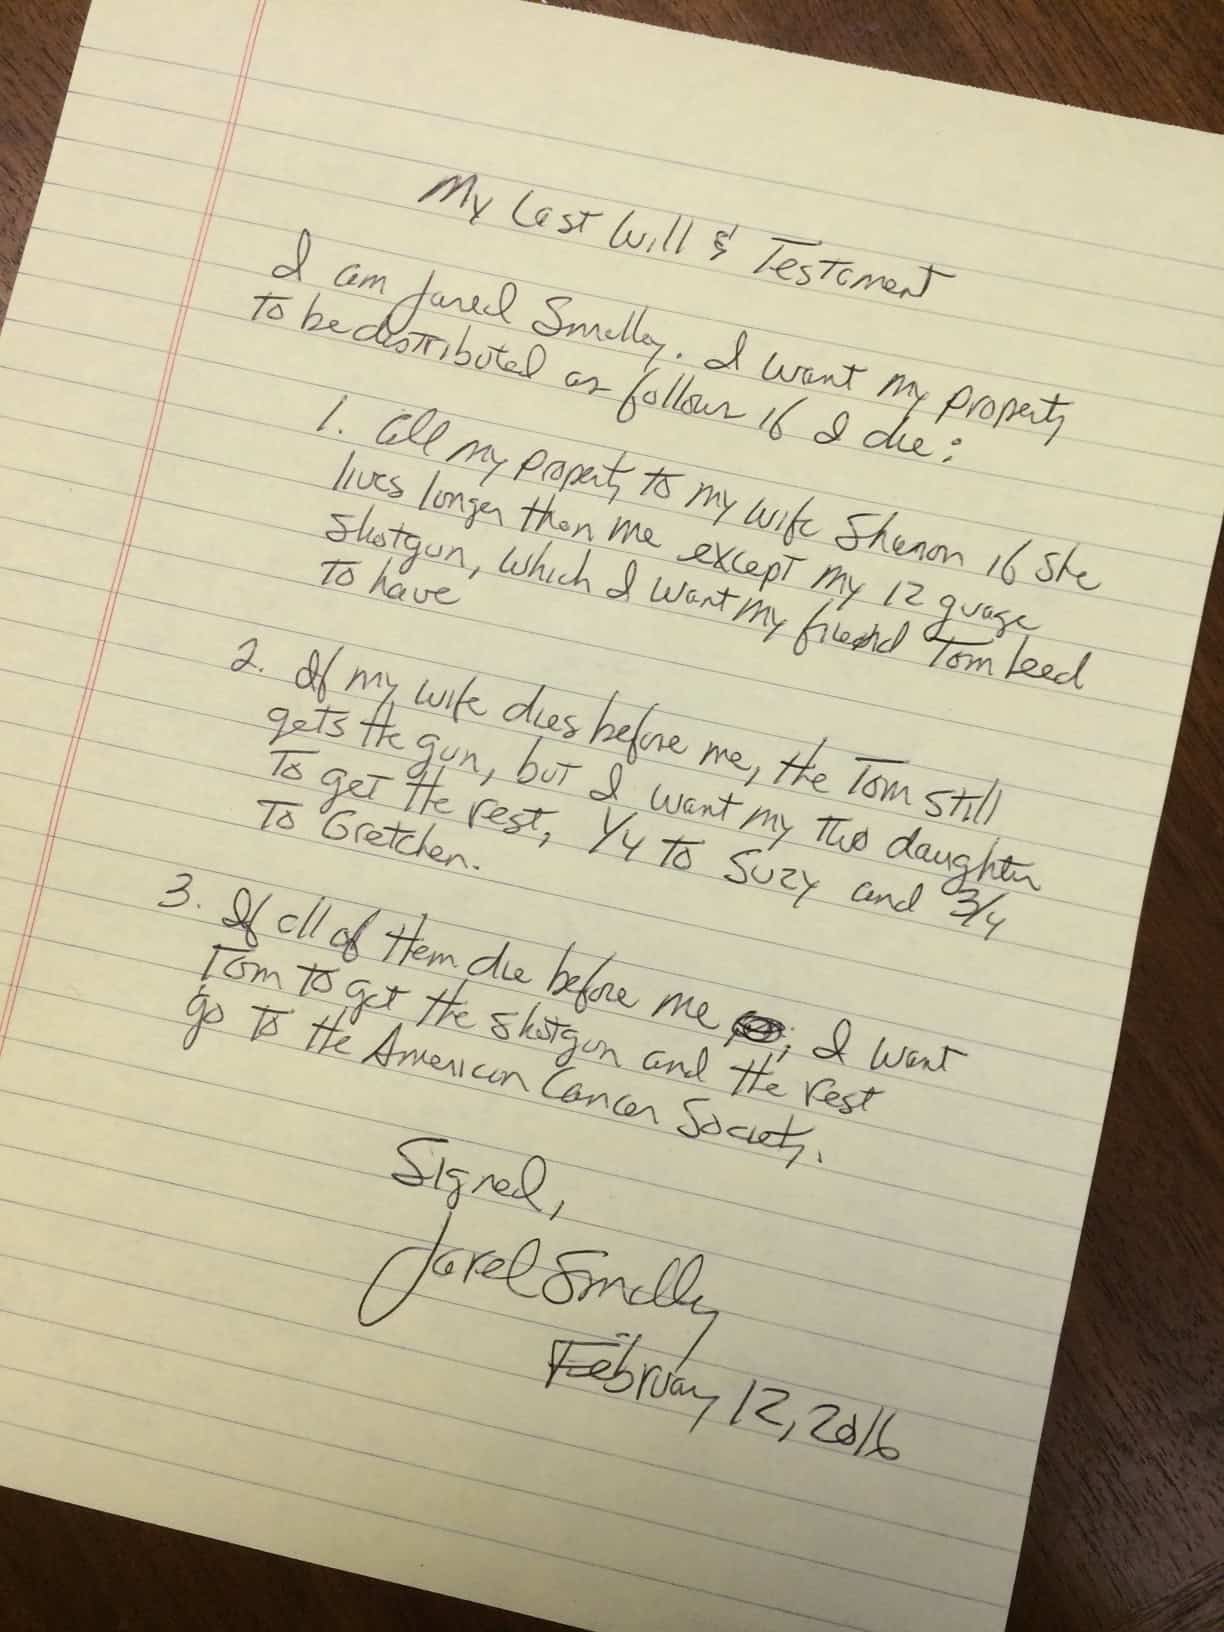 My Last Will & Testament
I am Jared Smalley. I want my property
to be distributed as follows if I die:
1. All my property to my wife Shanon if she
lives longer than me except my 12 guage
shotgun, which I want my friend Tom Leed
to have
2. If my wife dies before me, the Tom still
gets the gun, but I want my two daughter
to get the rest, 1/4 to Suzy and 3/4
to Gretchen.
3. If all of them die before me, I want
Tom to get the shotgun and the rest
go to the American Cancer Society.
Signed,
Jared Smalley
February 12, 2016